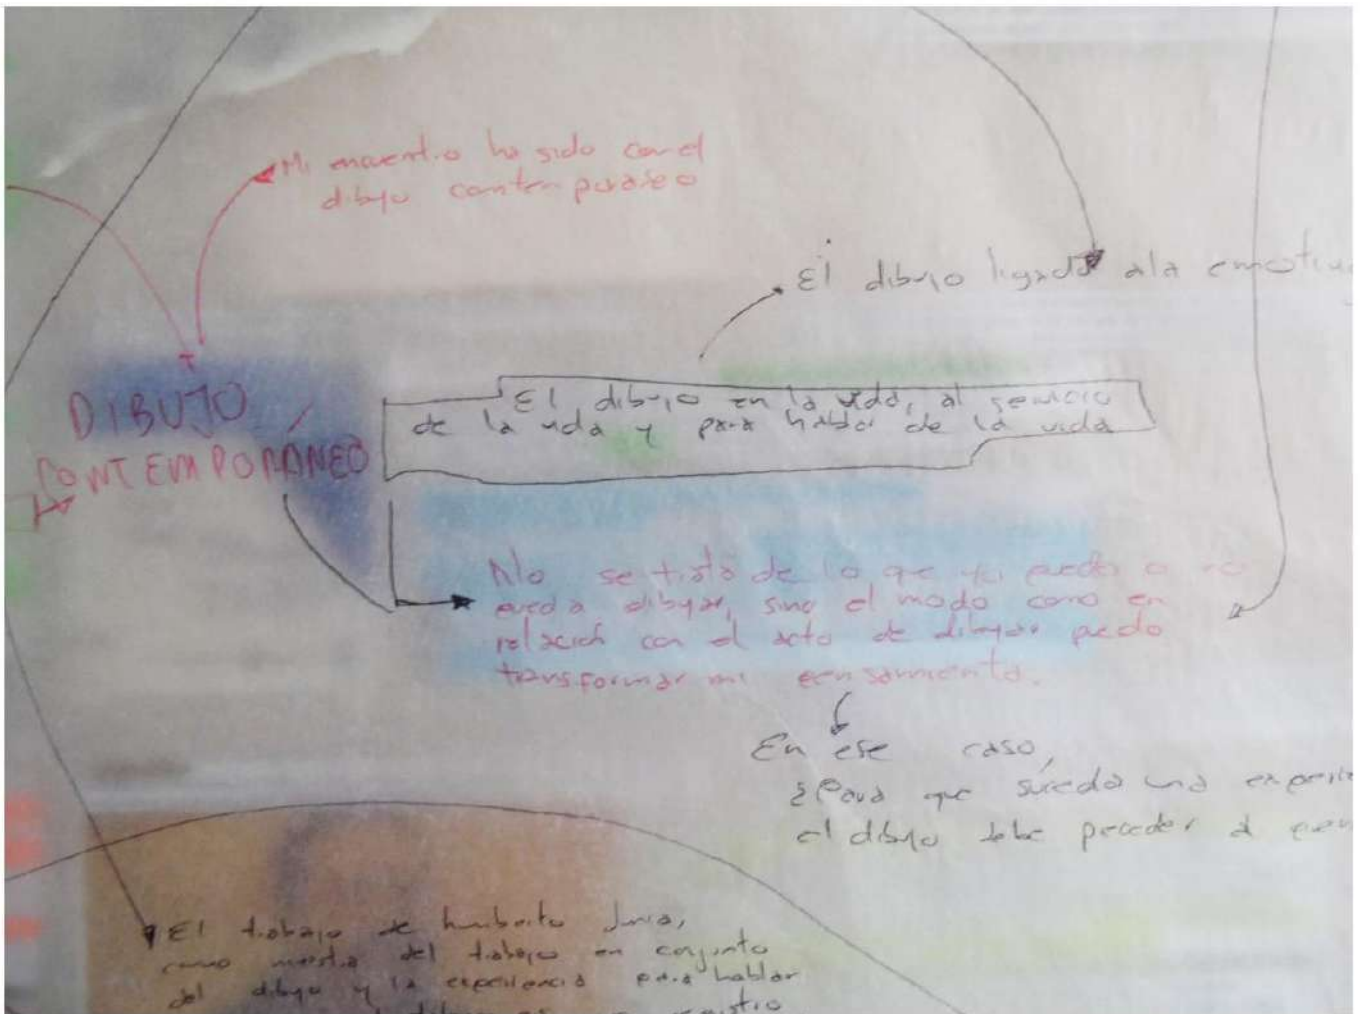 Mi encuentro ha sido con el
dibujo contemporaneo
El dibujo ligado a la
DIBUJO
CONTEMPORÁNEO
El dibujo en la vida, al servicio
de la vida y para hablar de la vida
No se trata de lo que yo pueda o no
pueda dibujar, sino el modo como en
relación con el acto de dibujar puedo
transformar mi pensamiento.
En ese caso,
¿Para que suceda una
el dibujo debe preceder al
El trabajo de humberto
como muestra del trabajo en conjunto
del dibujo y la experiencia para hablar